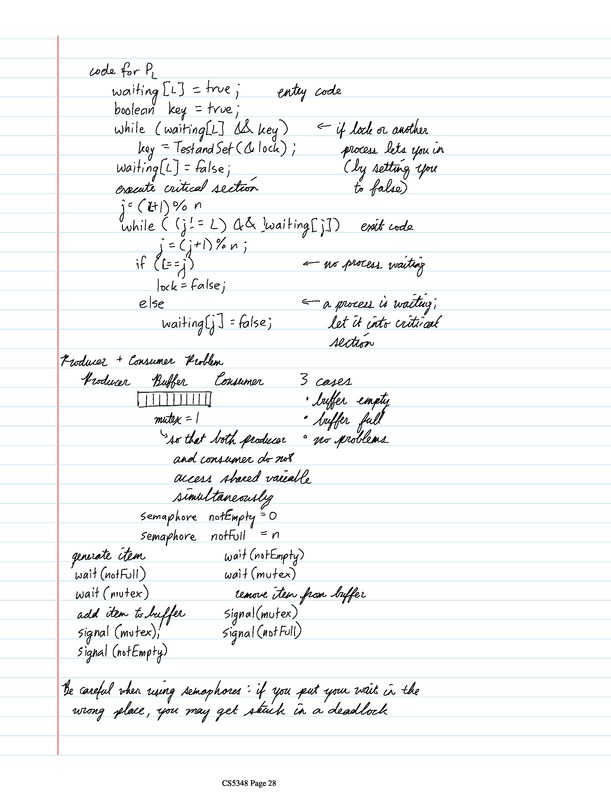 code for P_L
waiting[L] = true; entry code
boolean key = true;
while (waiting[L] && key) ← if lock or another
key = TestandSet(&lock); process lets you in
waiting[L] = false; (by setting you
execute critical section to false)
j = (L+1) % n
while ((j != L) && !waiting[j]) exit code
j = (j+1) % n;
if (L==j) ← no process waiting
lock = false;
else ← a process is waiting;
waiting[j] = false; let it into critical
section
Producer + Consumer Problem
Producer Buffer Consumer 3 cases
• buffer empty
mutex = 1 • buffer full
↳ so that both producer • no problems
and consumer do not
access shared variable
simultaneously
semaphore notEmpty = 0
semaphore notFull = n
generate item wait(notEmpty)
wait(notFull) wait(mutex)
wait(mutex) remove item from buffer
add item to buffer signal(mutex)
signal(mutex); signal(notFull)
signal(notEmpty)
Be careful when using semaphores: if you put your wait in the
wrong place, you may get stuck in a deadlock
CS5348 Page 28